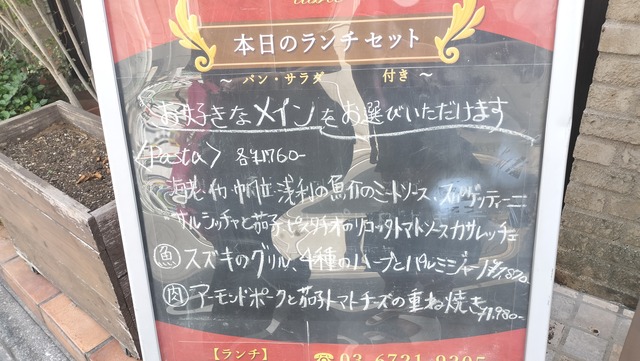 本日のランチセット
～ パン・サラダ 付き ～
お好きなメインをお選びいただけます
<Pasta> 各¥1760-
海老・イカ・帆立・浅利の魚介のミートソース、スパゲッティーニ
・サルシッチャと茄子・ピスタチオのリコッタトマトソース カサレッチェ
魚 スズキのグリル、4種のハーブとパルミジャーノ ¥1,870-
肉 アーモンドポークと茄子トマトチーズの重ね焼き ¥1,980-
【ランチ】 ☎03-6721-9205